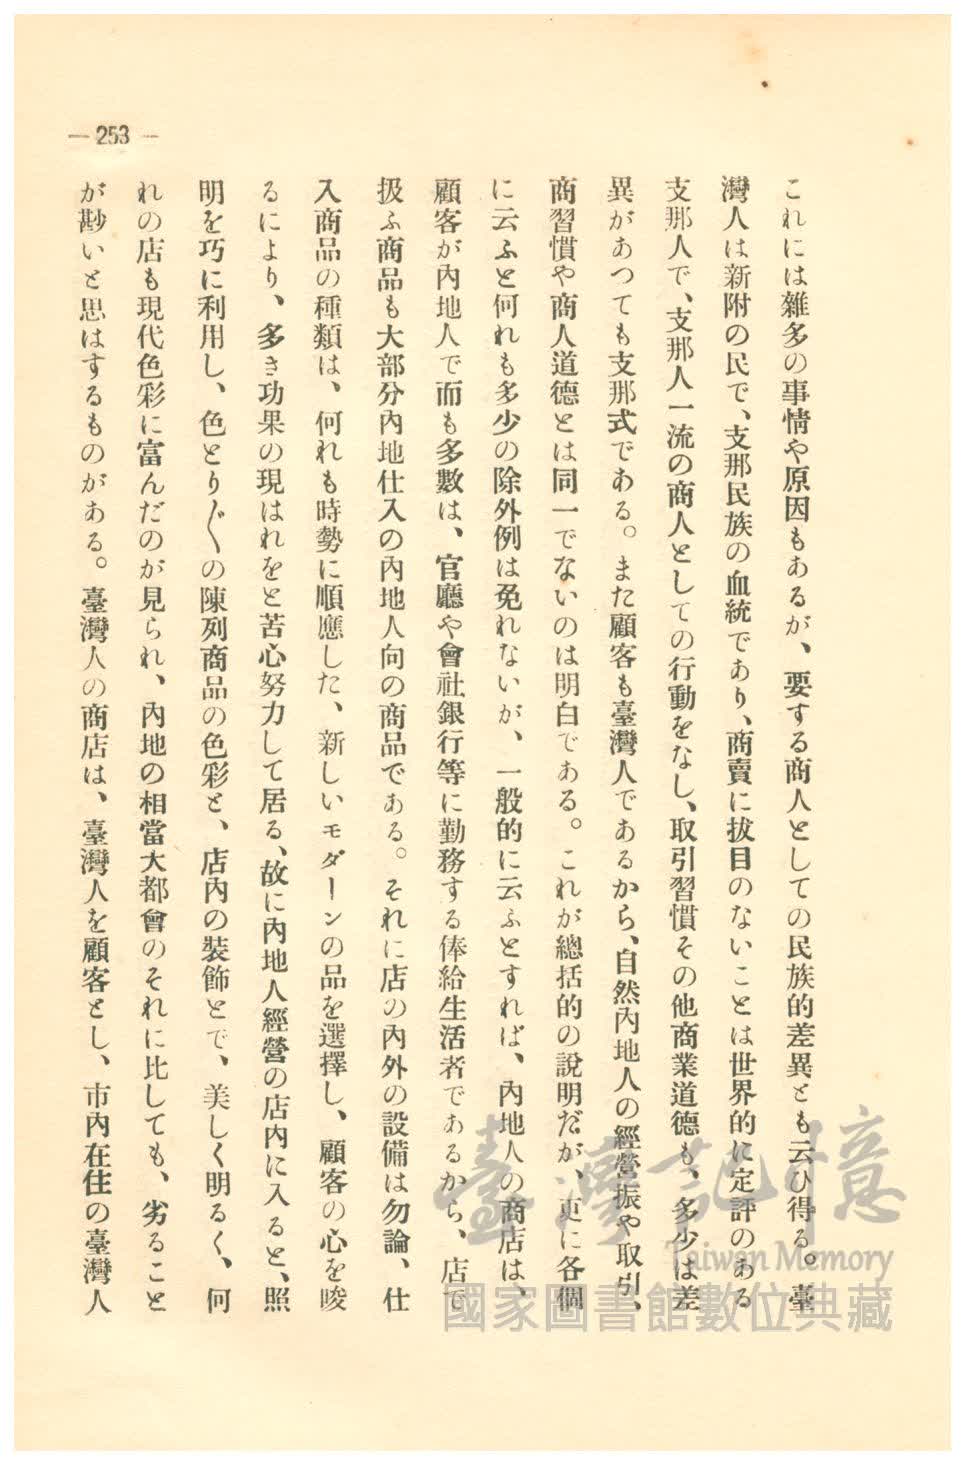 — 253 —
これには雜多の事情や原因もあるが、要する商人としての民族的差異とも云ひ得る。臺
灣人は新附の民で、支那民族の血統であり、商賣に拔目のないことは世界的に定評のある
支那人で、支那人一流の商人としての行動をなし、取引習慣その他商業道德も、多少は差
異があつても支那式である。また顧客も臺灣人であるから、自然內地人の經營振や取引、
商習慣や商人道德とは同一でないのは明白である。これが總括的の說明だが、更に各個
に云ふと何れも多少の除外例は免れないが、一般的に云ふとすれば、內地人の商店は、
顧客が內地人で而も多數は、官廳や會社銀行等に勤務する俸給生活者であるから、店で
扱ふ商品も大部分內地仕入の內地人向の商品である。それに店の內外の設備は勿論、仕
入商品の種類は、何れも時勢に順應した、新しいモダーンの品を選擇し、顧客の心を唆
るにより、多き功果の現はれをと苦心努力して居る、故に內地人經營の店內に入ると、照
明を巧に利用し、色とり〴〵の陳列商品の色彩と、店內の裝飾とで、美しく明るく、何
れの店も現代色彩に富んだのが見られ、內地の相當大都會のそれに比しても、劣ること
が尠いと思はするものがある。臺灣人の商店は、臺灣人を顧客とし、市內在住の臺灣人
臺灣記憶
Taiwan Memory
國家圖書館數位典藏